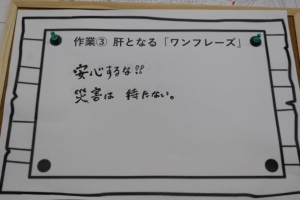 作業③ 肝となる「ワンフレーズ」
安心するな!!
災害は 待たない。